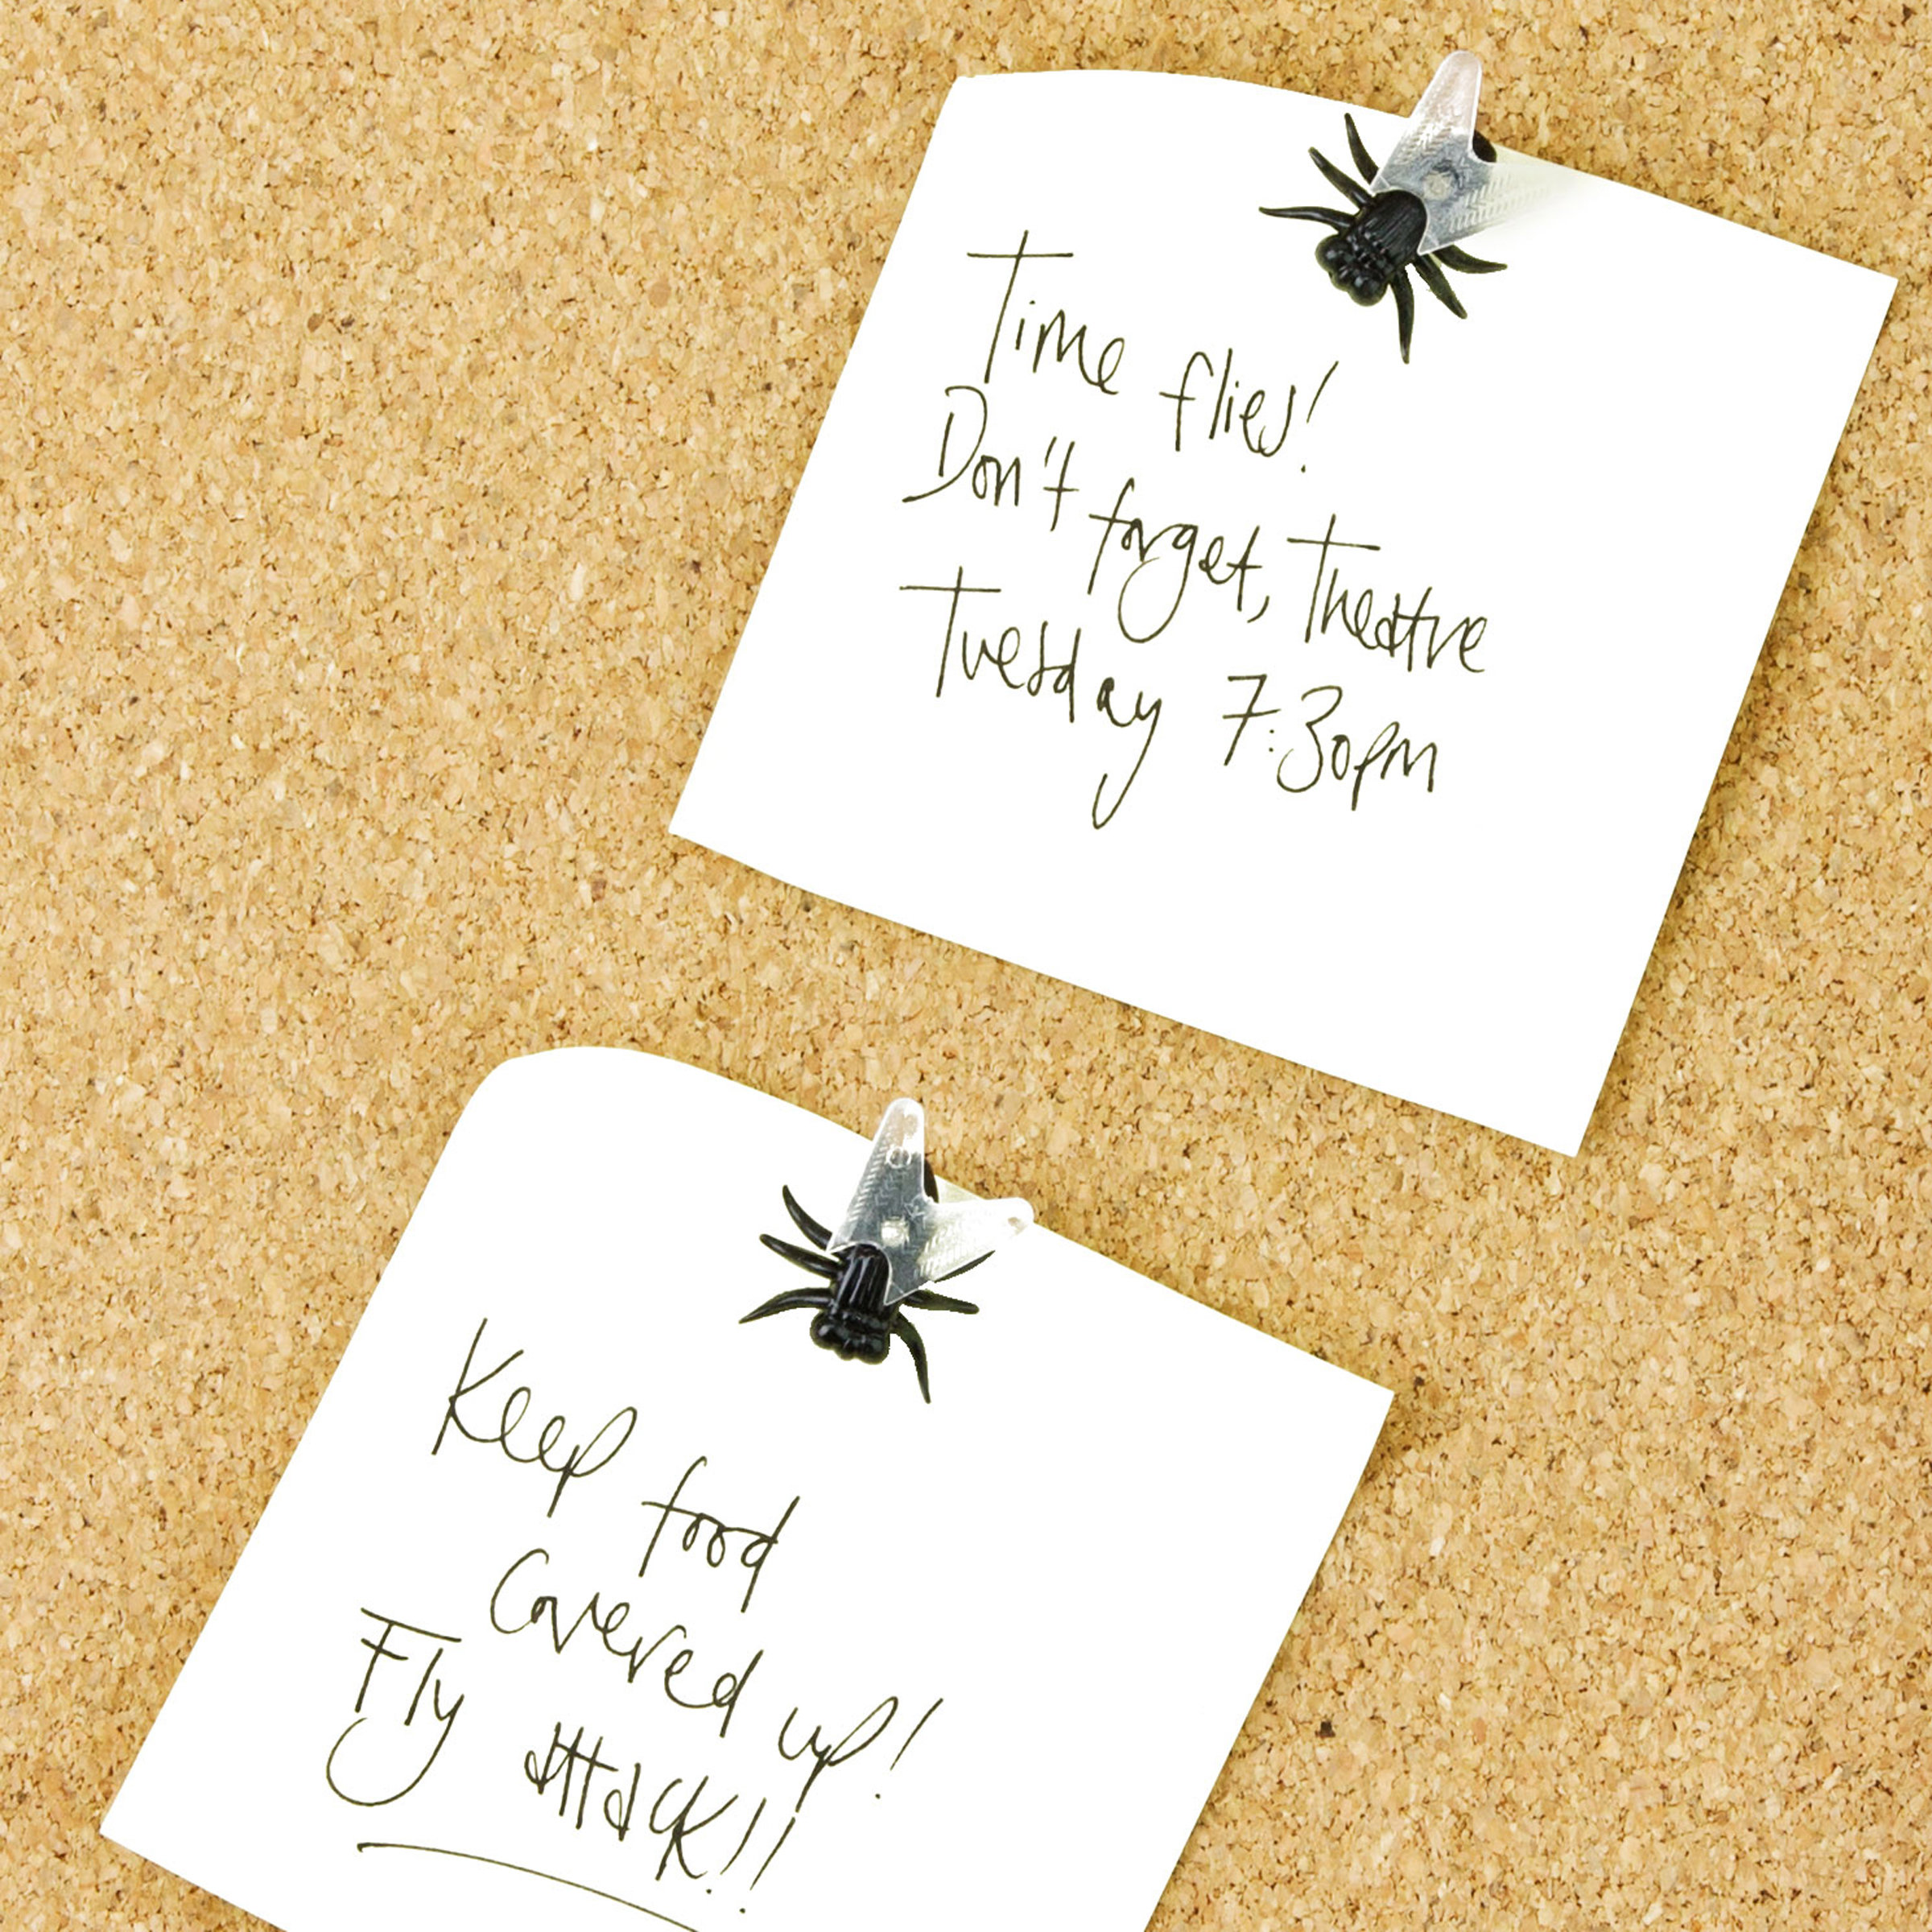 Time flies!
Don't forget, Theatre
Tuesday 7:30pm
Keep food
Covered up!
Fly attack!!